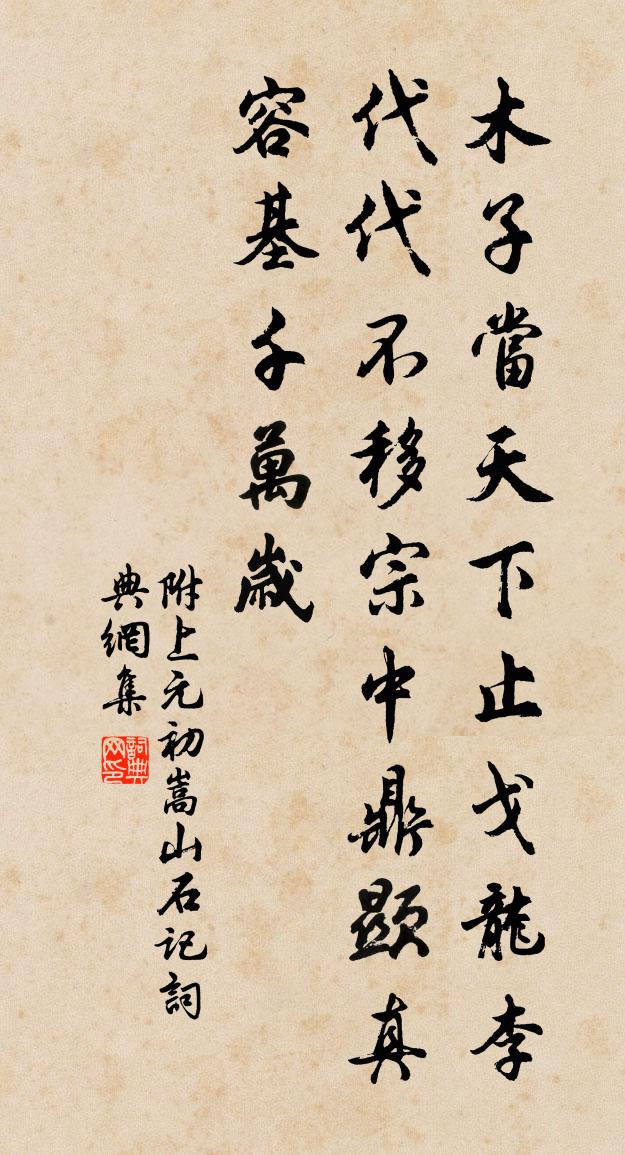 木子當天下止戈龍李
代代不移宗中鼎顯真
容基千萬歲
附上元初嵩山石記詞
典網集
詞典网印